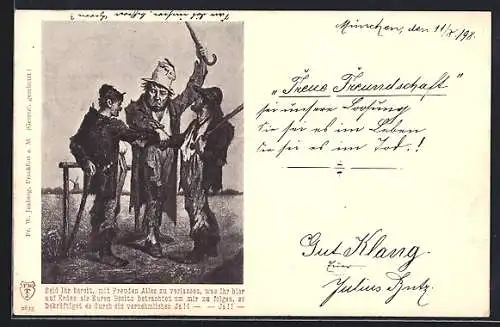 München, den 11/X/98.
„Treue Freundschaft“
sei unsere Losung
Sie sei es im Leben
Sie sei es im Tod.!
Gut Klang.
Euer
Julius
Fr. W. Junheng, Frankfurt a. M. (Gesetzl. geschützt.)
Seid Ihr bereit, mit Freuden Alles zu verlassen, was Ihr hier
auf Erden als Euren Besitz betrachtet um mir zu folgen, so
bekräftiget es durch ein vernehmliches Ja!! — — Ja!! —